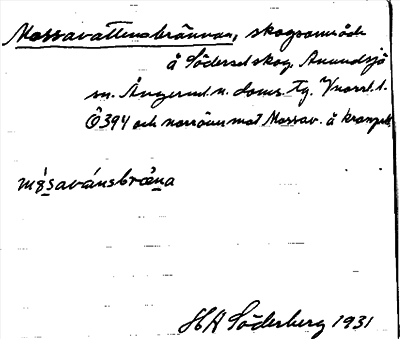 Mossavattensbrännan, skogsområde
å Södersel skog, Anundsjö
sn. Ångerml. n. doms. tg. V/norrl. l.
Ö 394 och norröver mot Mossav. å kronprk.
måsavánsbrǽna
HA Söderberg 1931